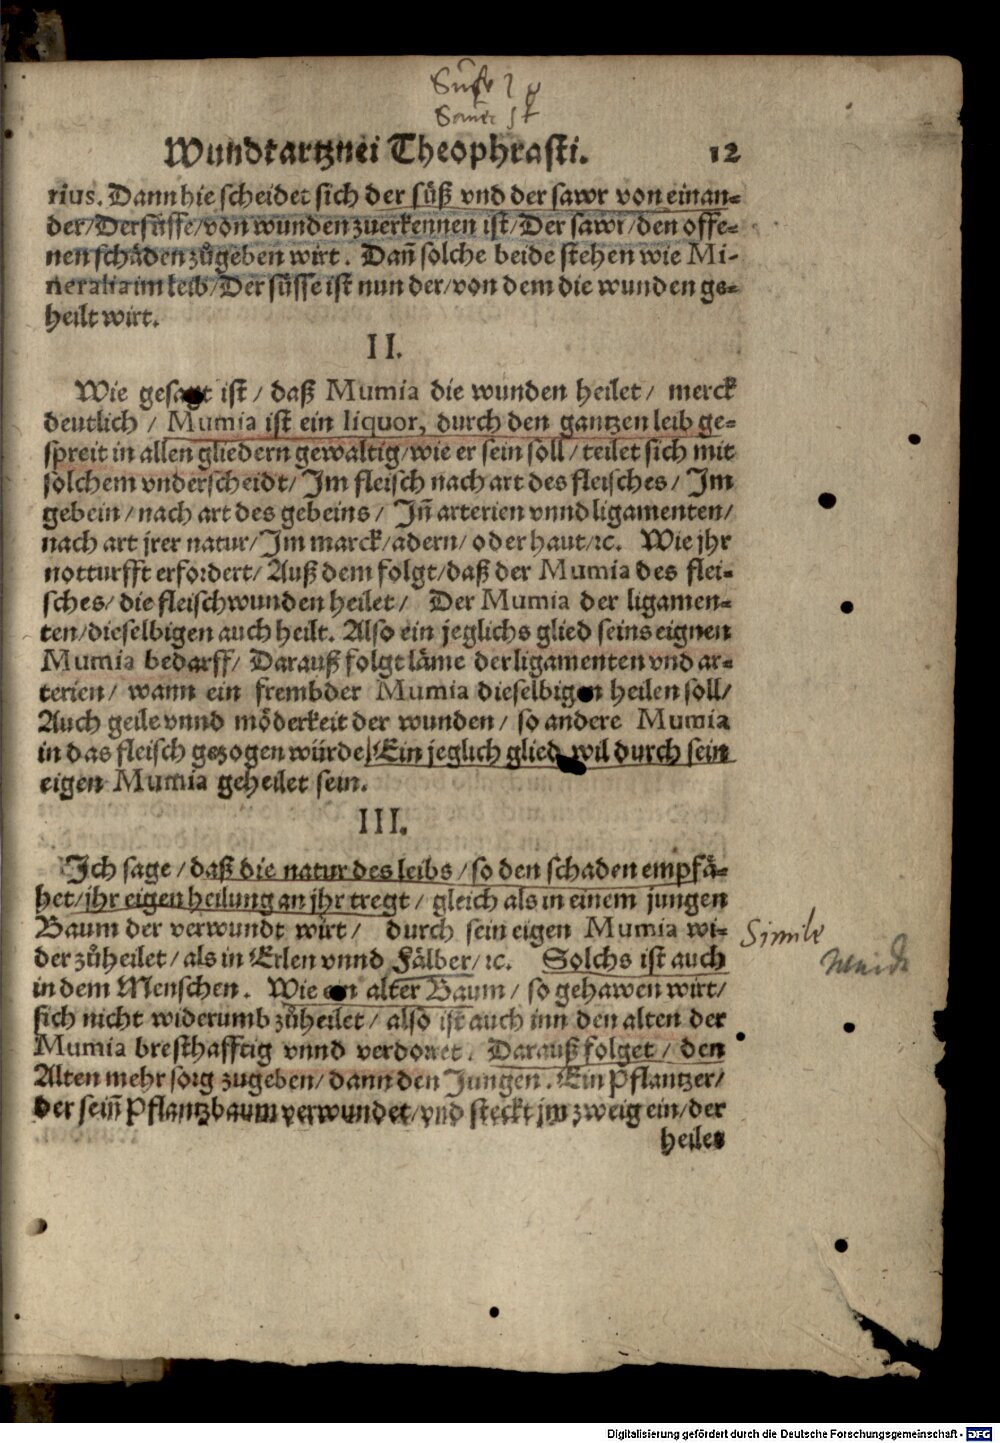 Süss
Sauer
Wundtartznei Theophrasti. 12
rius. Dann hie scheidet sich der süß vnd der sawr von einan-
der/ Der süsse/ von wunden zuerkennen ist/ Der sawr/ den offe-
nen schäden zůgeben wirt. Dañ solche beide stehen wie Mi-
neralia im leib/ Der süsse ist nun der/ von dem die wunden ge-
heilt wirt.
II.
Wie gesagt ist / daß Mumia die wunden heilet / merck
deutlich / Mumia ist ein liquor, durch den gantzen leib ge-
spreit in allen gliedern gewaltig/ wie er sein soll / teilet sich mit
solchem vnderscheidt/ Im fleisch nach art des fleisches / Im
gebein / nach art des gebeins / Iñ arterien vnnd ligamenten/
nach art jrer natur/ Im marck/ adern/ oder haut/ ꝛc. Wie jhr
notturfft erfordert/ Auß dem folgt/ daß der Mumia des flei-
sches/ die fleischwunden heilet / Der Mumia der ligamen-
ten/ dieselbigen auch heilt. Also ein jeglichs glied seins eignen
Mumia bedarff/ Darauß folgt läme der ligamenten vnd ar-
terien/ wann ein frembder Mumia dieselbigen heilen soll/
Auch geile vnnd möderkeit der wunden / so andere Mumia
in das fleisch gezogen würde/ Ein jeglich glied wil durch sein
eigen Mumia geheilet sein.
III.
Ich sage / daß die natur des leibs / so den schaden empfä-
het/ jhr eigen heilung an jhr tregt / gleich als in einem jungen
Baum der verwundt wirt / durch sein eigen Mumia wi-
der zůheilet / als in Erlen vnnd Fälber/ ꝛc. Solchs ist auch
in dem Menschen. Wie ein alter Baum / so gehawen wirt/
sich nicht widerumb zůheilet / also ist auch inn den alten der
Mumia bresthafftig vnnd verdorret. Darauß folget / den
Alten mehr sorg zugeben/ dann den Jungen. Ein Pflantzer/
der seiñ Pflantzbaum verwundet/ vnd steckt jm zweig ein/ der
heilet
Simile
Weide
Digitalisierung gefördert durch die Deutsche Forschungsgemeinschaft - DFG